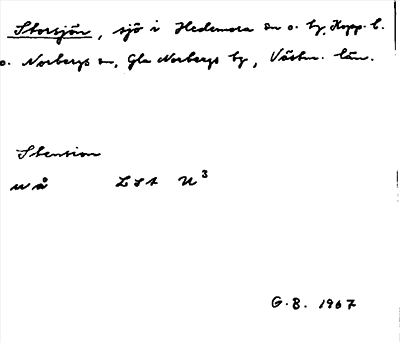 Storsjön, sjö i Hedemora sn o. by, Kopp. l.
o. Norbergs sn, Gla Norbergs by, Västm. län.
Stension
u å LSA U³
G.B. 1967